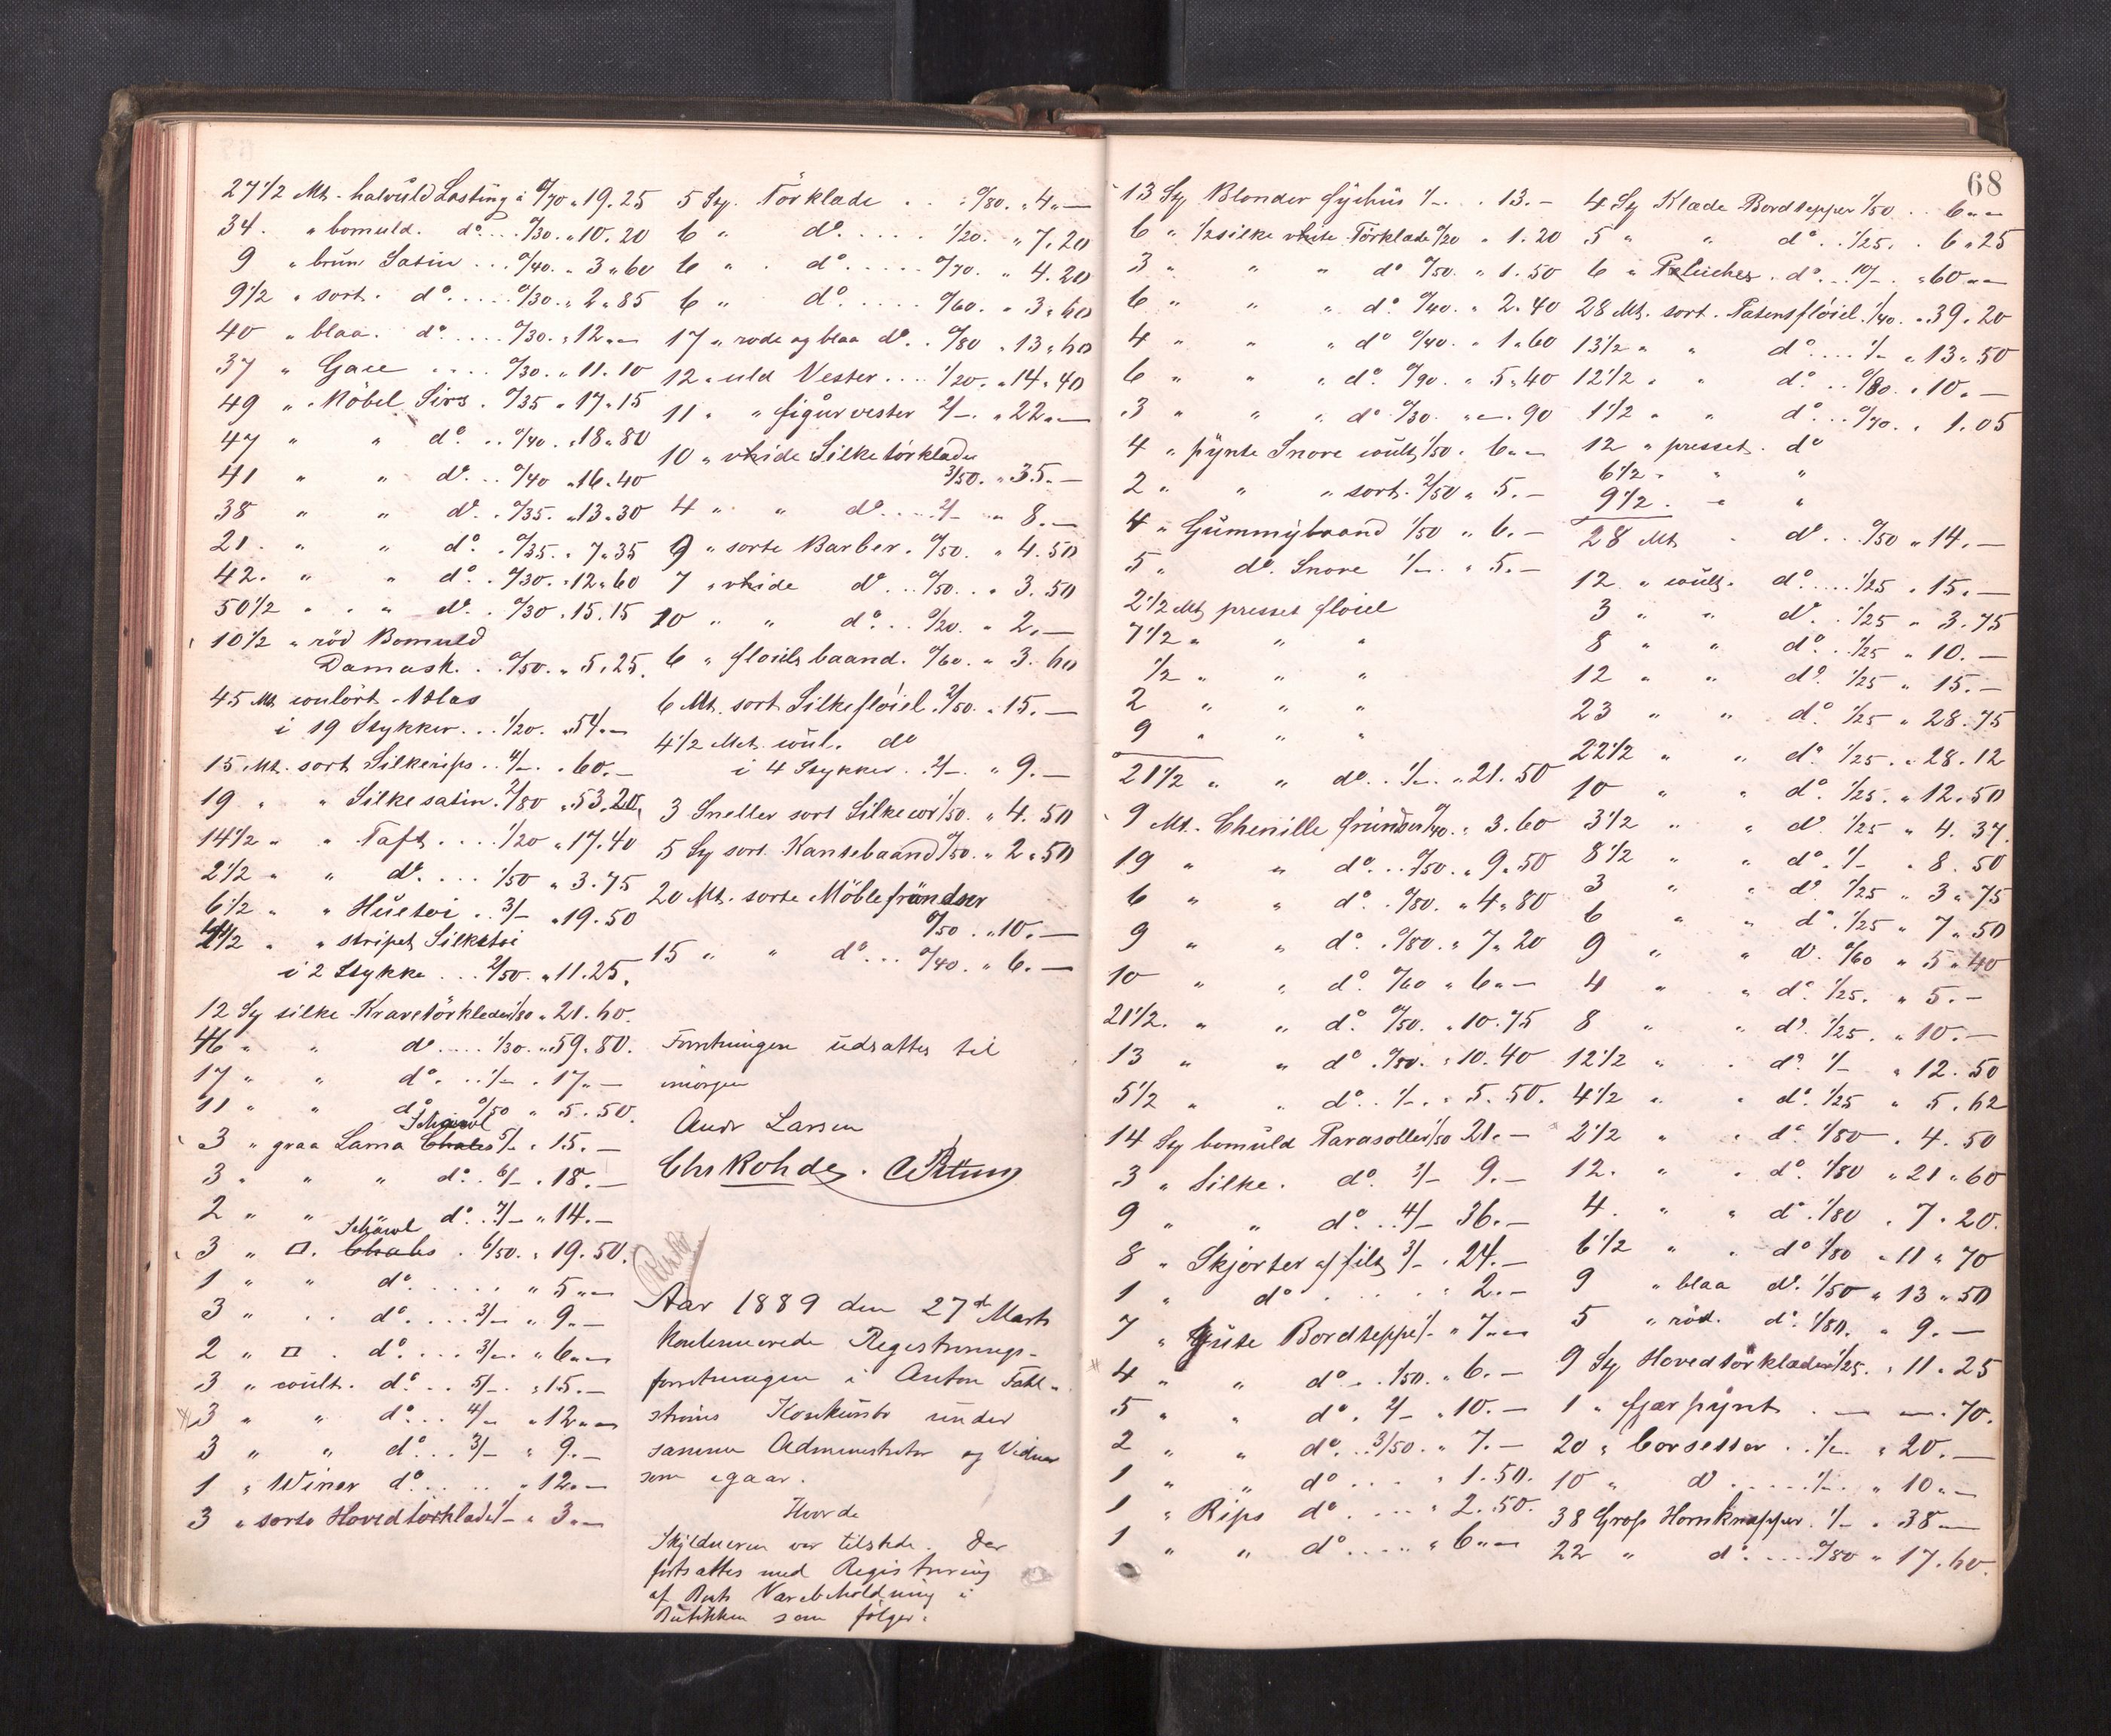 27 1/2 Mt. halvuld Lasting a 0/70 " 19.25
34. " bomuld. do... 0/30. " 10.20
9 " brun Satin... 0/40. " 3 " 60
9 1/2 " sort. do.... 0/30. " 2 " 85
40 " blaa. do.... 0/30. " 12 " —
37 " Gace.... 0/30. " 11.10
49 " Möbel Sirs. 0/35 " 17 " 15
47 " " do... 0/40. " 18 " 80
41 " " do... 0/40 " 16.40
38 " " do. 0/35. " 13.30
21. " " do. 0/35. " 7 " 35
42. " " do. 0/30. " 12 " 60
50 1/2 " " do. 0/30. 15.15
10 1/2 " röd Bomuld
Damask.. 0/50. " 5.25.
45 Mt. coulört Atlas
i 19 Stykker... 1/20. " 54. —
15 Mt. sort Silkerips.. 4/-. " 60. —
19 " " Silkesatin. 2/80 " 53.20
14 1/2 " " Taft.... 1/20 " 17.40
2 1/2 " " do.... 1/50 " 3.75
6 1/2 " " Huetoi.. 3/- " 19.50
4 1/2 " " stripet Silketoi
i 2 Stykke... 2/50. " 11.25.
12 Sty silke Kravetörklæder 1/80 " 21.60.
46 " " do.... 1/30. " 59.80.
17 " " do... 1/- " 17 " —
11 " " do. 0/50 " 5.50.
Schawl
3 " graa Lama Chales 5/- " 15. —
3 " " " do. 6/- " 18. —
2 " " do.. 7/- " 14. —
Schawl
3 " □. Chales. 6/50. " 19.50.
1 " " do..... " 5 " —
3 " " do.... 3/- " 9. —
2 " □. do.... 3/-. " 6 " —
3 " coult. do... 5/-. " 15. —
3 " " do... 4/- " 12 " —
3 " " do... 3/- " 9. —
1 " Winer do..... " 12 " —
3 " sorte Hovedtörklæde 1/- " 3 " —
5 Sty. Törklæde.. 0/80. " 4 " —
6 " do..... 1/20. " 7.20
6 " do..... 0/70. " 4.20
6 " do..... 0/60. " 3 " 60
17 " röde og blaa do.. 0/80 " 13 " 60
12 " uld Vester.... 1/20. " 14 " 40
11 " " figur vester 2/-. " 22 " —
10 " vhide Silketörklæder
3/50. " 35. —
4 " " do.... 2/- " 8. —
9 " sorte Barber. 0/50. " 4.50
7 " vhide do... 0/50.. " 3.50
10 " " do... 0/20. " 2. —
6 " floiels baand. 0/60. " 3.60
6 Mt. sort Silkefloiel. 2/50. " 15. —
4 1/2 Mt. coul. do
i 4 Stykker.. 2/-. " 9. —
3 Sneller sort Silkecor 1/50. " 4.50
5 Sty sort Kantebaand 0/50. " 2 " 50
20 Mt. sorte Möblefründser
0/50. " 10. —
15 " " do... 0/40. " 6. —
Forretningen udsattes til
imorgen
Andr Larsen
Chs Rohde.
Aar 1889 den 27de Marts
kontinuerede Registrerings-
forretningen i Anton Fahl-
ströms Konkursbo under
samme Administrator og Vidner
som igaar.
Hvorda
Skyldneren var tilstede. Der
fortsattes med Registrering
af Boets Varebeholdning i
Butikken som følger:
68
13 Sty Blonder fychüs 1/-.. 13. —
6 " 1/2 silke vhite Törklæde 0/20 " 1.20
3 " " " do 0/50. " 1.50
6 " " " do. 0/40. " 2.40
4 " " " do 0/40. " 1 " 60
6 " " " do. 0/90. " 5 " 40
3 " " " do 0/30. " — . 90
4 " pynte Snore coult 1/50. 6 " —
2 " " " sort. 2/50 " 5. —
4 " Gummybaand 1/50 " 6. —
5 " do. Snore 1/-. " 5. —
2 1/2 Mt presset floiel
7 1/2 " " "
1/2 " " "
2 " " "
9 " " "
21 1/2 " " do.. 1/-. " 21.50
9 Mt. Chenille fründser 0/40. " 3.60
19 " " do... 0/50. " 9.50
6 " " do. 0/80. " 4 " 80
9 " " do. 0/80. " 7 " 20
10 " " do. 0/60 " 6 " —
21 1/2. " " do. 0/50. " 10.75
13 " " do. 0/80. " 10.40
5 1/2 " " do.. 1/-. " 5.50.
14 Sty bomuld Parasoller 1/50 21. —
3 " Silke. do. 3/- 9. —
9 " " do.. 4/- 36. —
8 " Skjorter af filt 3/- " 24. —
1 " do..... 2. —
7 " Jute Bordteppe 1/- " 7 " —
4 " " do... 1/50. " 6. —
5 " " do. 2/- " 10. —
2 " " do... 3/50. " 7. —
1 " " do.... " 1.50.
1 " Rips do..... " 2.50.
1 " " do..... " 6 " —
4 Sty Klæde Bordtepper 1/50.. 6 " —
5 " " do.. 1/25.. 6 " 25
6 " Pelüches. do... 10/-. " 60 " —
28 Mt. sort. Patensfloiel. 1/40. " 39.20
13 1/2 " " do.... 1/- " 13 " 50
12 1/2 " " do.. 0/80. " 10. —
1 1/2 " " do... 0/70. " 1.05
12 " presset. do
6 1/2 " " "
9 1/2. " "
28 Mt " do... 0/50 " 14. —
12 " coult. do.... 1/25 " 15. —
3 " " do. 1/25 " 3.75
8 " " do.. 1/25 " 10. —
12 " " do. 1/25 " 15. —
23 " " do. 1/25 " 28.75
22 1/2 " " do. 1/25. " 28.12
10 " " do. 1/25. " 12.50
3 1/2 " " do. 1/25 " 4.37.
8 1/2 " " do. 1/- " 8.50
3 " " do 1/25 " 3 " 75
6 " " do. 1/25 " 7 " 50
9 " " do. 0/60 " 5 " 40
4 " " do. 1/25. " 5. —
8 " " do. 1/25. " 10. —
12 1/2 " " do. 1/- " 12.50
4 1/2 " " do. 1/25 " 5.62
2 1/2 " " do. 1/80 " 4.50
12. " " do. 1/80 " 21 " 60
4. " " do. 1/80 " 7.20.
6 1/2 " " do 1/80 " 11 " 70
9 " blaa do. 1/50 " 13 " 50
5 " röd. do. 1/80. " 9. —
9 Sty Hovedtörklæder 1/25. " 11 " 25
1 " fjær pynt. — — . 70.
20 " Corsetter.. 1/- " 20. —
10 " do..... 1/-. " 10 " —
38 Gross Hornknapper. 1/- " 38 —
22 " do..... 0/80 " 17.60.